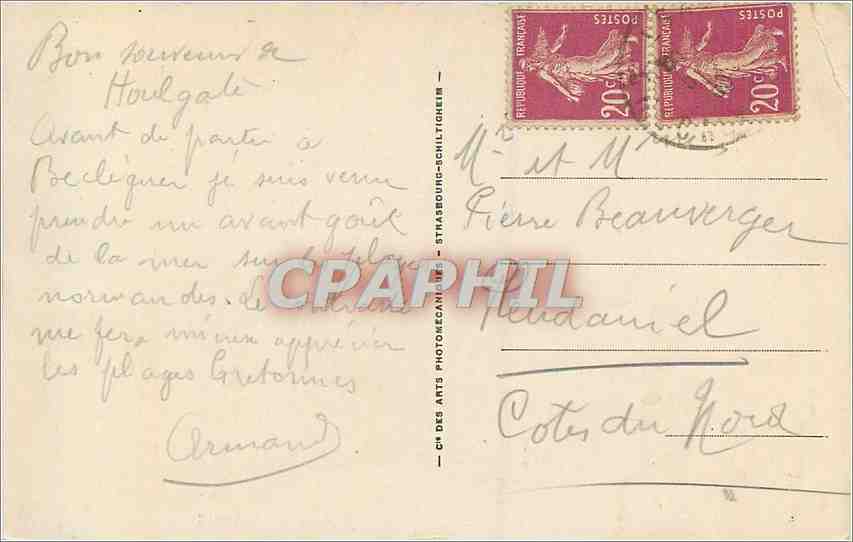 Bon souvenir de
Houlgate
Avant de partir à
je suis venu
prendre un avant goût
de la mer sur les plages
normandes. Le
me fera mieux apprécier
les plages bretonnes
Armand
— Cie DES ARTS PHOTOMECANIQUES - STRASBOURG-SCHILTIGHEIM —
REPUBLIQUE FRANÇAISE
POSTES
20c
REPUBLIQUE FRANÇAISE
POSTES
20c
Mr et Mme
Pierre Beauverger
Pleudaniel
Cotes du Nord
CPAPHIL